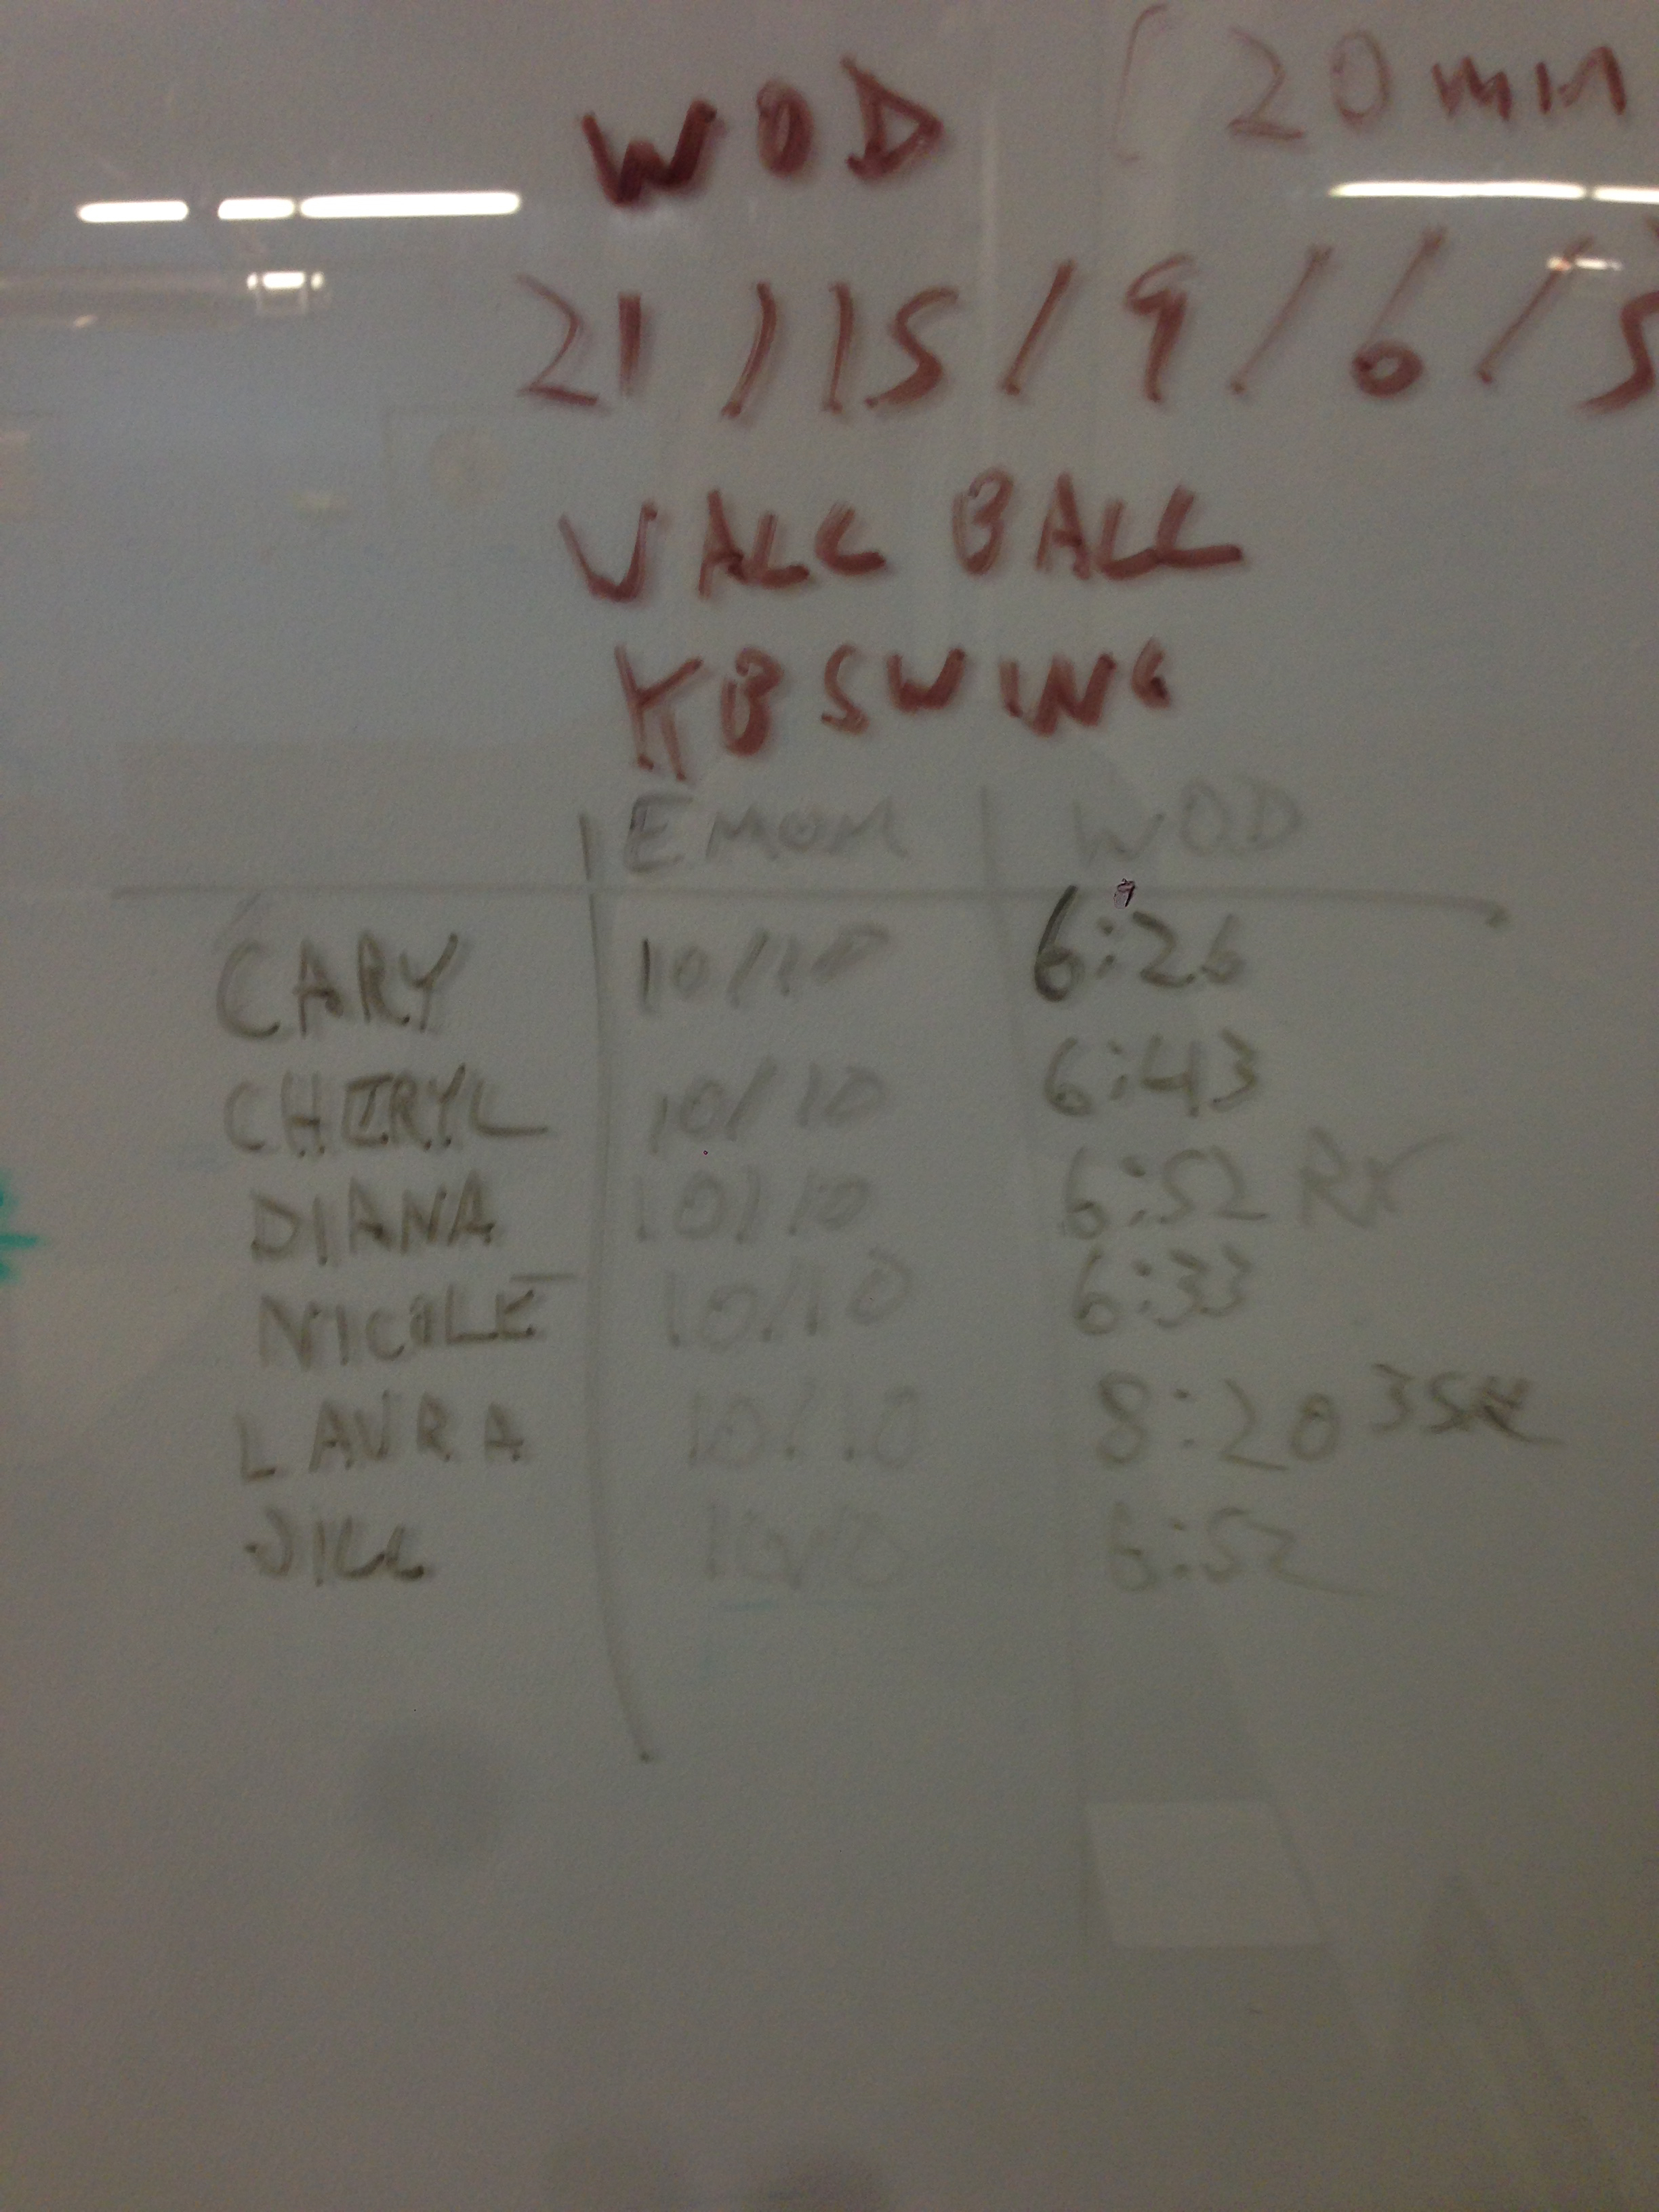 WOD (20 min
21/15/9/6/3
WALL BALL
KB SWING
EMOM WOD
CARY 10/10 6:26
CHERYL 10/10 6:43
DIANA 10/10 6:52 RX
NICOLE 10/10 6:33
LAURA 10/10 8:20
JILL 10/10 6:52